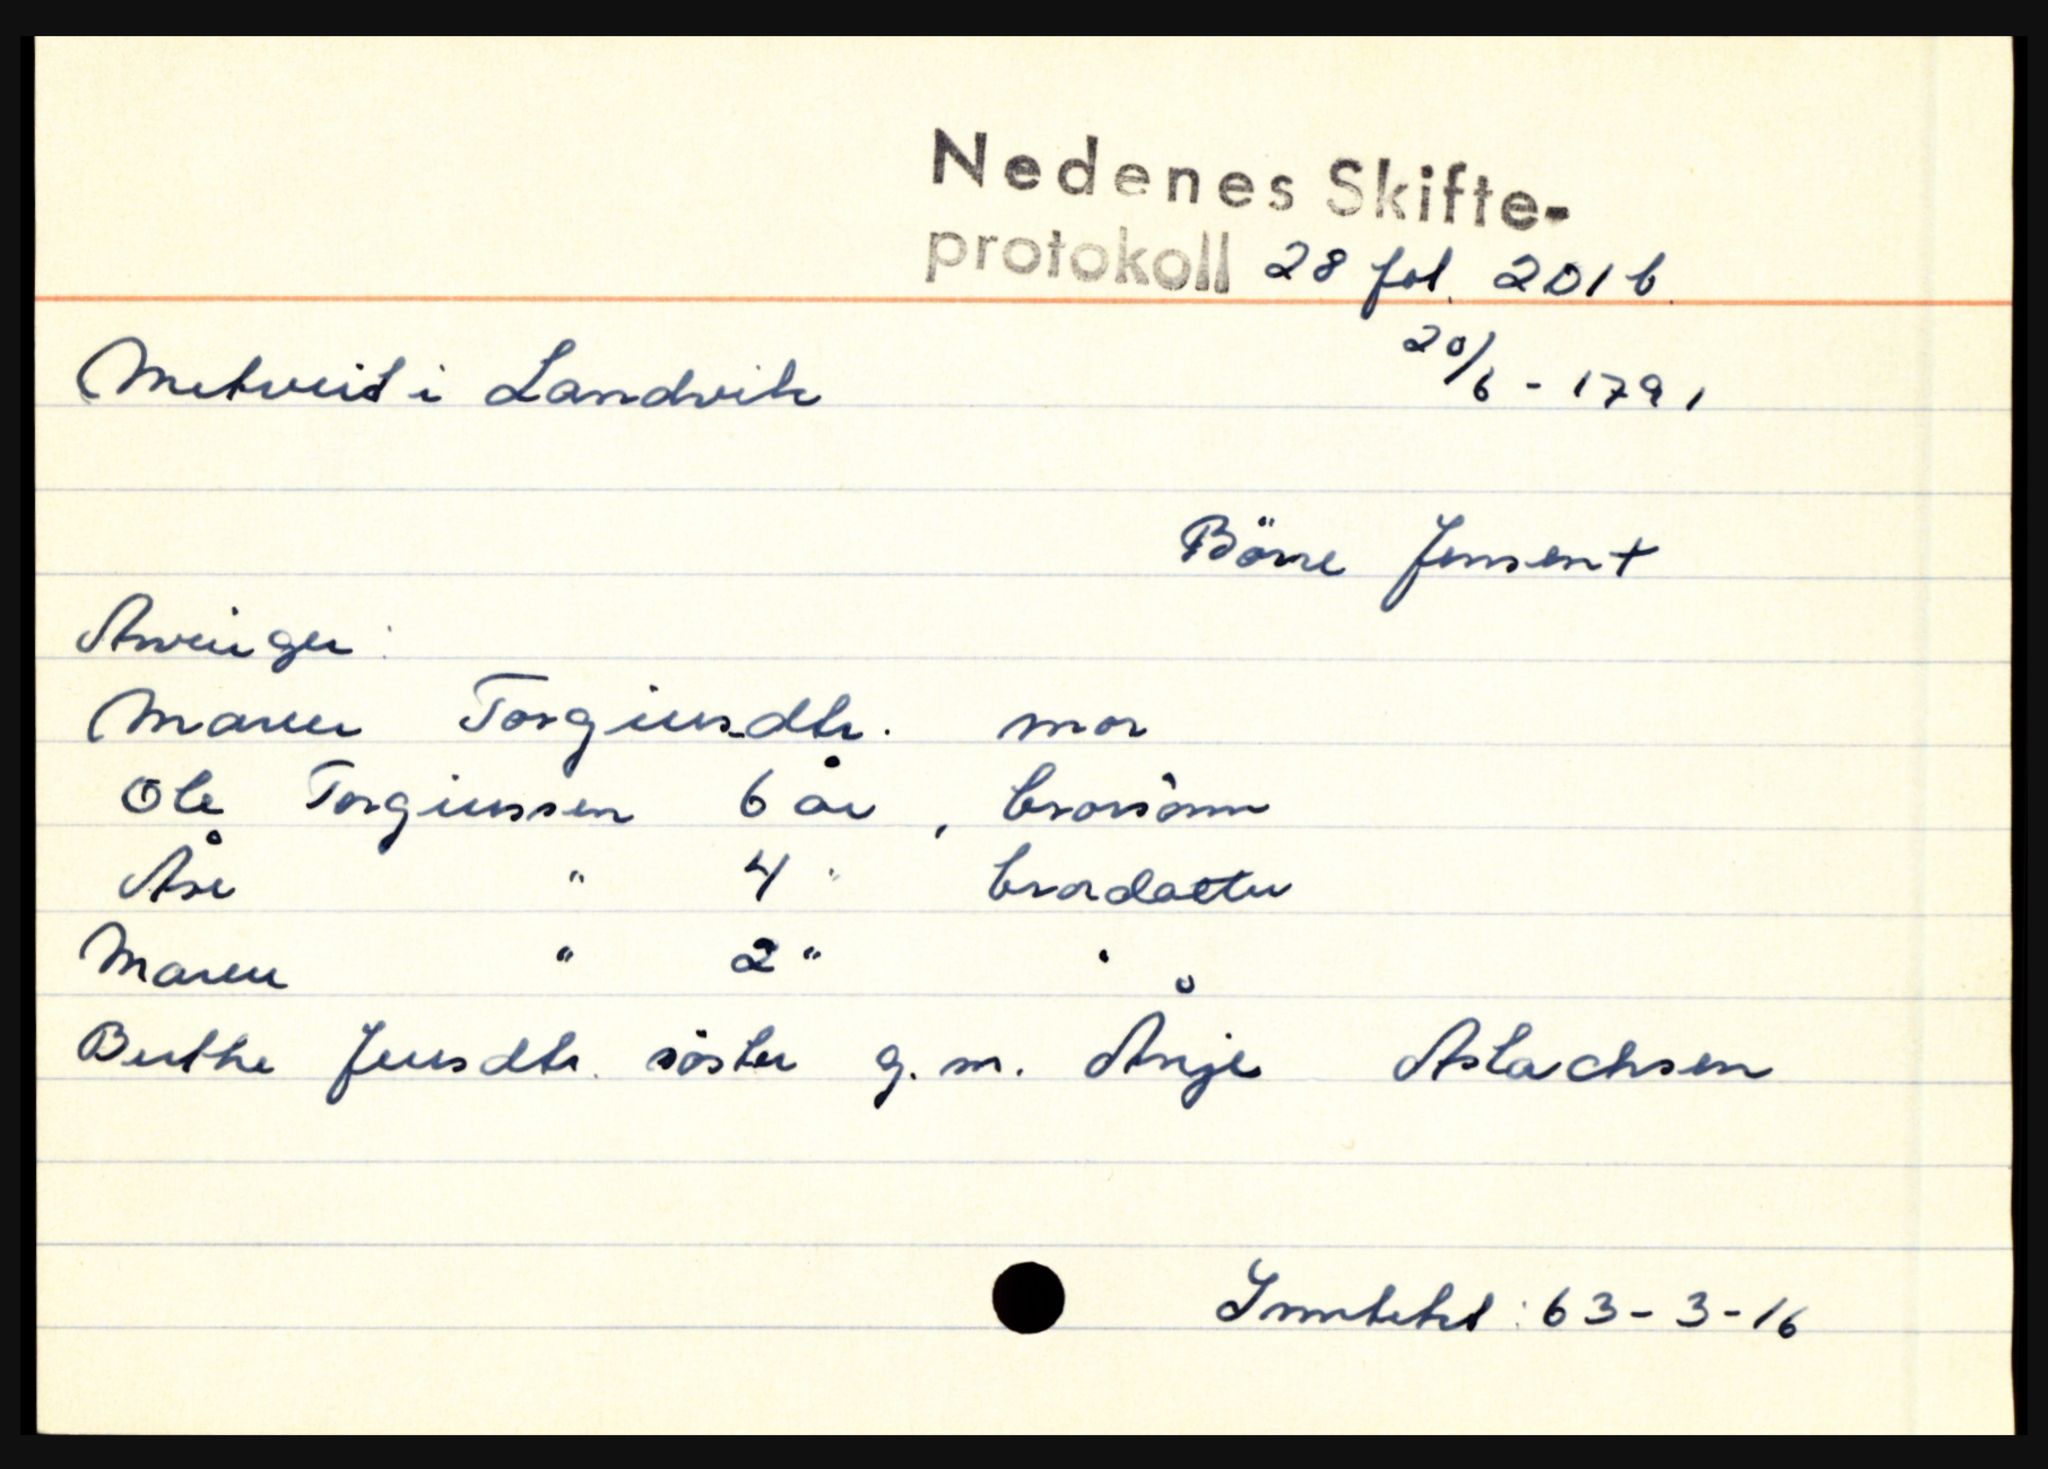 Nedenes Skifte-
protokoll 28 fol. 201 b.
Metveit i Landvik
20/6 - 1791
Börre Jensen +
Arvinger:
Maren Torgiusdtr. mor
Ole Torgiussen 6 år, brorsönn
Åse " 4 " brordatter
Maren " 2 " "
Berthe Jensdtr. söster g. m. Ånje Aslachsen
Inntekt : 63-3-16